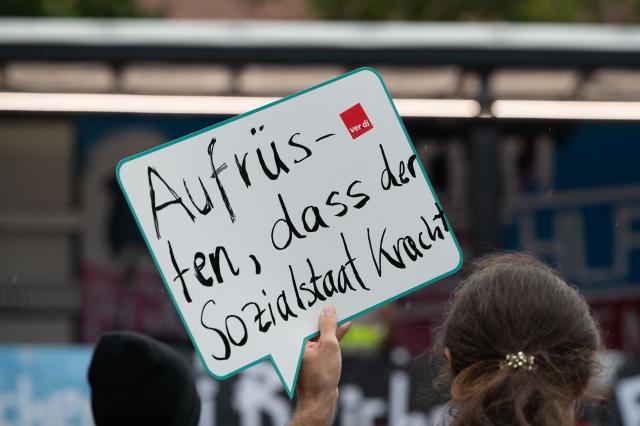 ver di
Aufrüs-
ten, dass der
Sozialstaat kracht